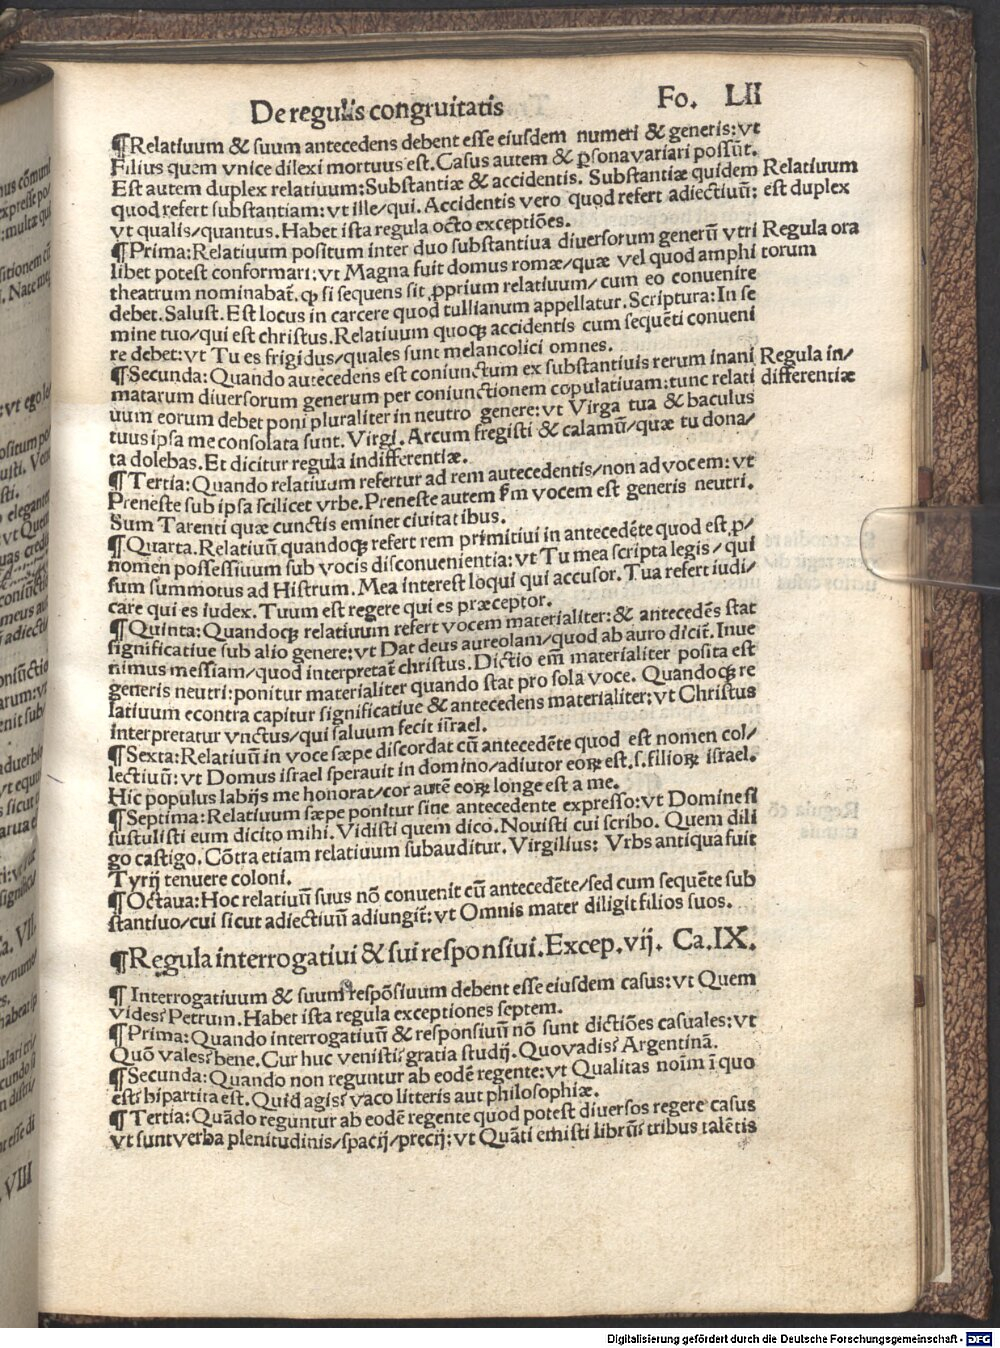 De regulis congruitatis Fo. LII
¶Relatiuum & suum antecedens debent esse eiusdem numeri & generis: vt
Filius quem vnice dilexi mortuus est. Casus autem & ꝑsona variari possūt.
Est autem duplex relatiuum: Substantiæ & accidentis. Substantiæ quidem
quod refert substantiam: vt ille/qui. Accidentis vero quod refert adiectiuū:
vt qualis/quantus. Habet ista regula octo exceptiões.
Relatiuum
est duplex
¶Prima: Relatiuum positum inter duo substantiua diuersorum generū vtri
libet potest conformari: vt Magna fuit domus romæ/quæ vel quod amphi
theatrum nominabat̄. ꝙ si sequens sit ꝓprium relatiuum/ cum eo conuenire
debet. Salust. Est locus in carcere quod tullianum appellatur. Scriptura: In se
mine tuo/qui est christus. Relatiuum quoqꝫ accidentis cum sequēti conueni
re debet: vt Tu es frigidus/quales sunt melancolici omnes.
Regula ora
torum
¶Secunda: Quando autecedens est coniunctum ex substantiuis rerum inani
matarum diuersorum generum per coniunctionem copulatiuam: tunc relati
uum eorum debet poni pluraliter in neutro genere: vt Virga tua & baculus
tuus ipsa me consolata sunt. Virgi. Arcum fregisti & calamū/quæ tu dona/
ta dolebas. Et dicitur regula indifferentiæ.
Regula in/
differentiæ
¶Tertia: Quando relatiuum refertur ad rem autecedentis/non ad vocem: vt
Preneste sub ipsa scilicet vrbe. Preneste autem ẜm vocem est generis neutri.
Sum Tarenti quæ cunctis eminet ciuitatibus.
¶Quarta. Relatiuū quandoqꝫ refert rem primitiui in antecedēte quod est ꝓ/
nomen possessiuum sub vocis disconuenientia: vt Tu mea scripta legis/ qui
sum summotus ad Histrum. Mea interest loqui qui accusor. Tua refert iudi/
care qui es iudex. Tuum est regere qui es præceptor.
¶Quinta: Quandoqꝫ relatiuum refert vocem materialiter: & antecedēs stat
significatiue sub alio genere: vt Dat deus aureolam/quod ab auro dicit̄. Inue
nimus messiam/quod interpretat̄ christus. Dictio em̄ materialiter posita est
generis neutri: ponitur materialiter quando stat pro sola voce. Quandoqꝫ re
latiuum econtra capitur significatiue & antecedens materialiter: vt Christus
interpretatur vnctus/qui saluum fecit israel.
¶Sexta: Relatiuū in voce sæpe discordat cū antecedēte quod est nomen col/
lectiuū: vt Domus israel sperauit in domino/adiutor eoꝝ est. s. filioꝝ israel.
Hic populus labijs me honorat/cor autē eoꝝ longe est a me.
¶Septima: Relatiuum sæpe ponitur sine antecedente expresso: vt Domine si
sustulisti eum dicito mihi. Vidisti quem dico. Nouisti cui scribo. Quem dili
go castigo. Cōtra etiam relatiuum subauditur. Virgilius: Vrbs antiqua fuit
Tyrij tenuere coloni.
¶Octaua: Hoc relatiuū suus nō conuenit cū antecedēte/sed cum sequēte sub
stantiuo/cui sicut adiectiuū adiungit̄: vt Omnis mater diligit filios suos.
¶Regula interrogatiui & sui responsiui. Excep. vij. Ca. IX.
¶ Interrogatiuum & suum respōsiuum debent esse eiusdem casus: vt Quem
vides? Petrum. Habet ista regula exceptiones septem.
¶Prima: Quando interrogatiuū & responsiuū nō sunt dictiões casuales: vt
Quō vales? bene. Cur huc venisti? gratia studij. Quo vadis? Argentinā.
¶Secunda: Quando non reguntur ab eodē regente: vt Qualitas noīm ī quo
est? bipartita est. Quid agis? vaco litteris aut philosophiæ.
¶Tertia: Quādo reguntur ab eodē regente quod potest diuersos regere casus
vt sunt verba plenitudinis/spacij/precij: vt Quāti emisti librū? tribus talētis
Digitalisierung gefördert durch die Deutsche Forschungsgemeinschaft - DFG